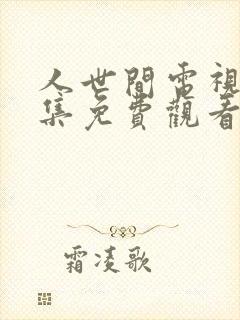 人世間電視
集免費觀看
霜凌歌